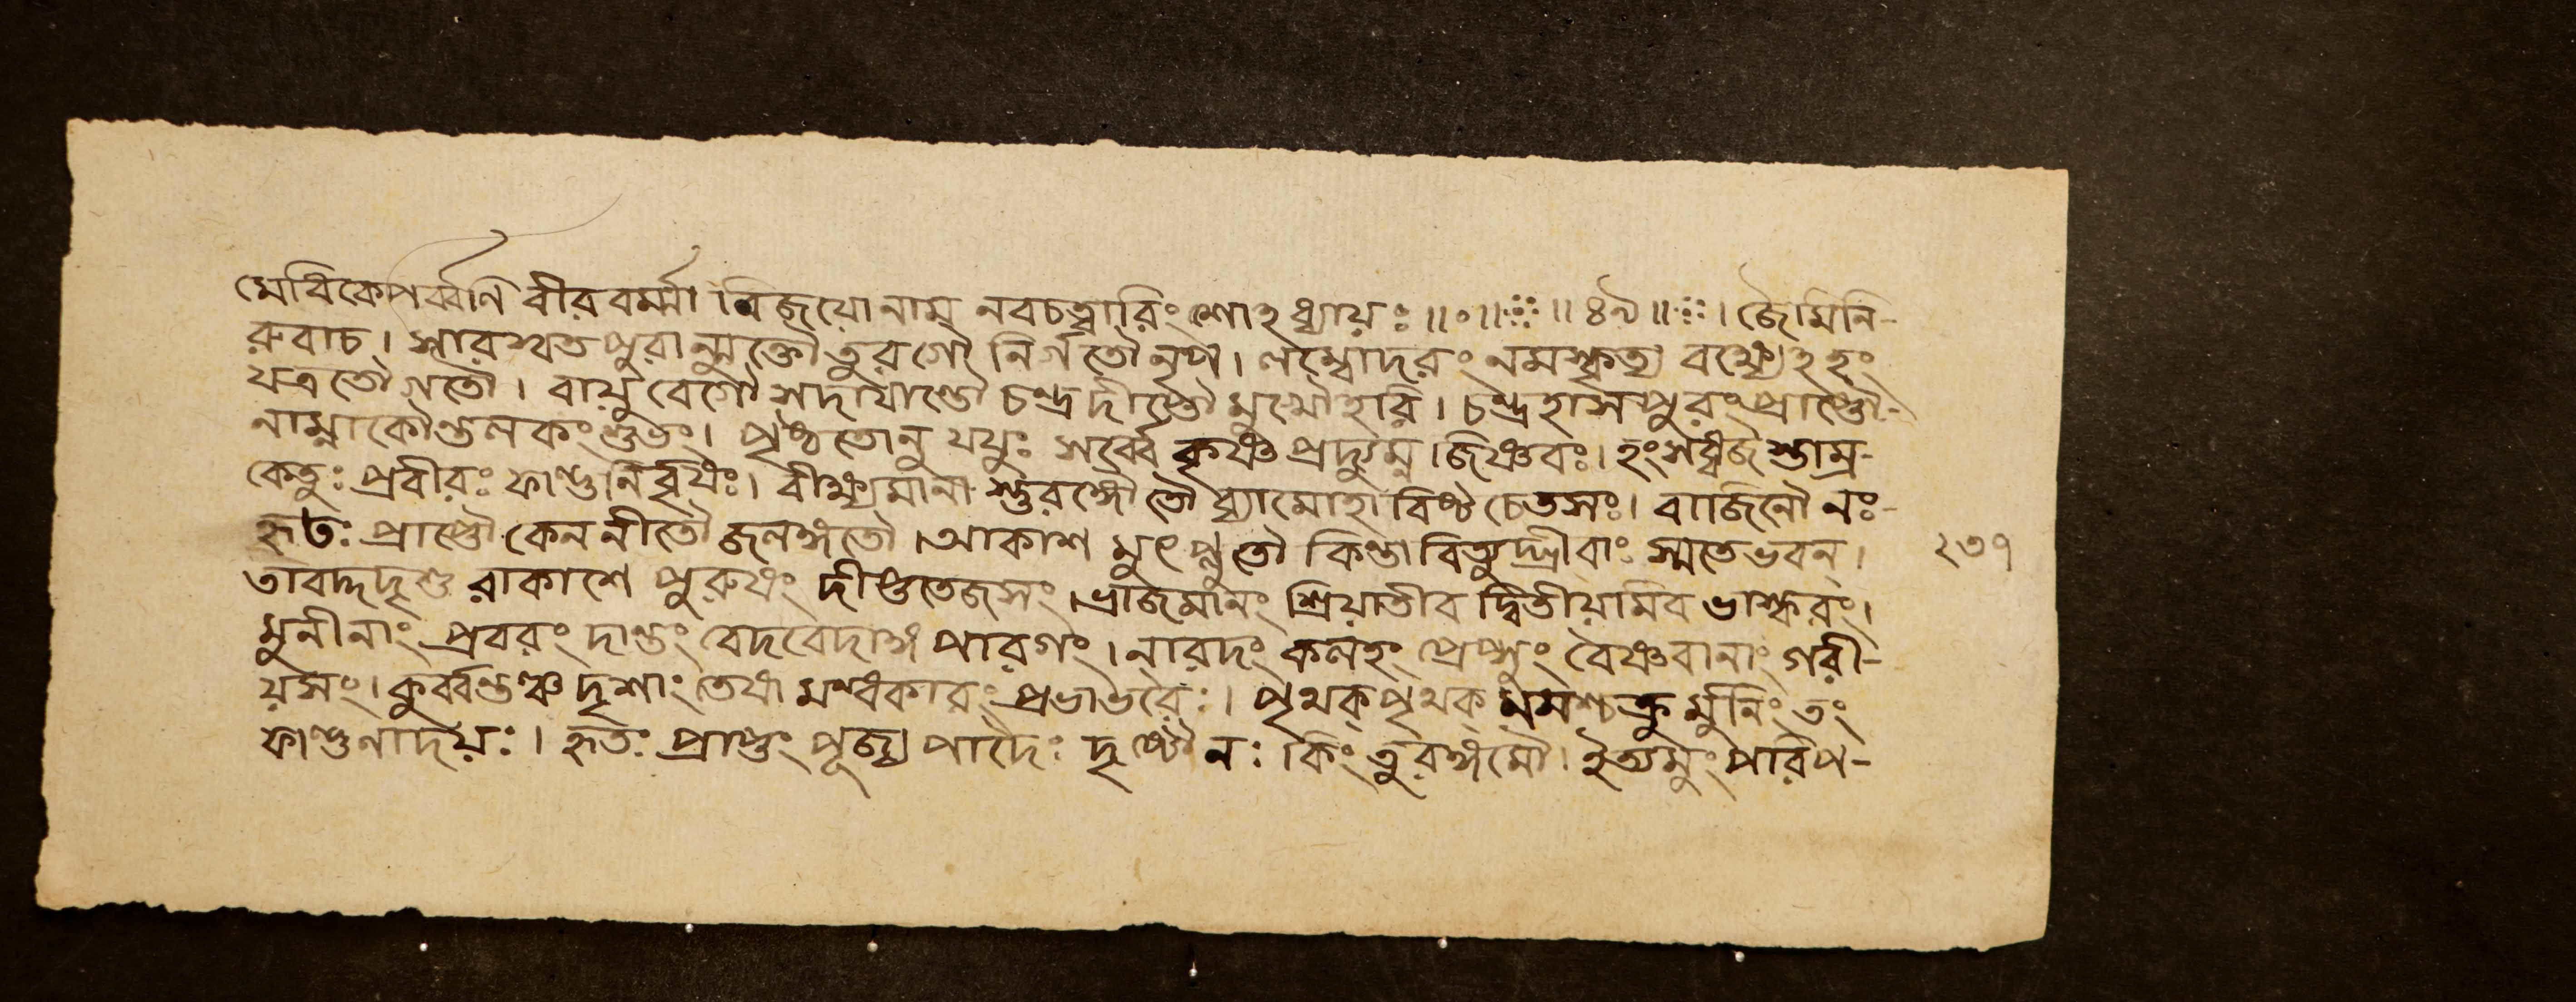 মেধিকেপর্ব্বণি বীরবর্ম্মা বিজয়োনাম নবচত্বারিংশোঽধ্যায়ঃ ॥०॥ ॥৪৯॥ । জৈমিনি-
রুবাচ । সারস্বতপুরান্মুক্তৌ তুরগৌ নির্গতৌ নৃপ । লম্বোদরং নমস্কৃত্য বক্ষ্যেঽহং
যত্রতৌগতৌ । বায়ুবেগৌ চন্দ্রদীপ্তৌ হরি । চন্দ্রহাসপুরং প্রাপ্তৌ-
নাম্নাকৌন্তলকংশুভং । পৃষ্ঠতোনুযযুঃ সর্ব্বে কৃষ্ণপ্রদ্যুম্নজিষ্ণবঃ । হংসধ্বজস্তাম্র-
কেতুঃ প্রবীরঃ ফাল্গুনির্বৃষঃ । বীক্ষ্যমানাস্তুরঙ্গৌতৌ ব্যামোহাবিষ্টচেতসঃ । বাজিনৌ নঃ-
হৃতঃ প্রাপ্তৌ কেননীতৌ জলঙ্গতৌ । আকাশমুৎপ্লুতৌ কিম্বা স্মতেভবন্ । ২৩৭
তাবদ্দদৃশুরাকাশে পুরুষং দীপ্ততেজসং । ভ্রাজমানং শ্রিয়াতীব দ্বিতীয়মিব ভাস্করং ।
মুনীনাং প্রবরং দান্তং বেদবেদাঙ্গপারগং । নারদং কলহং প্রেপ্সুং বৈষ্ণবানাং গরী-
য়সং । কুর্ব্বন্তঞ্চদৃশাং তেষামন্ধকারং প্রভাভরৈঃ । পৃথক্পৃথক্ নমশ্চক্রুর্মুনিং তং
ফাল্গুনাদয়ঃ । হৃতঃ প্রাপ্তং পূজ্যপাদৈঃ দৃষ্টৌ নঃ কিং তুরঙ্গমৌ । ইত্যমুং পরিপ-